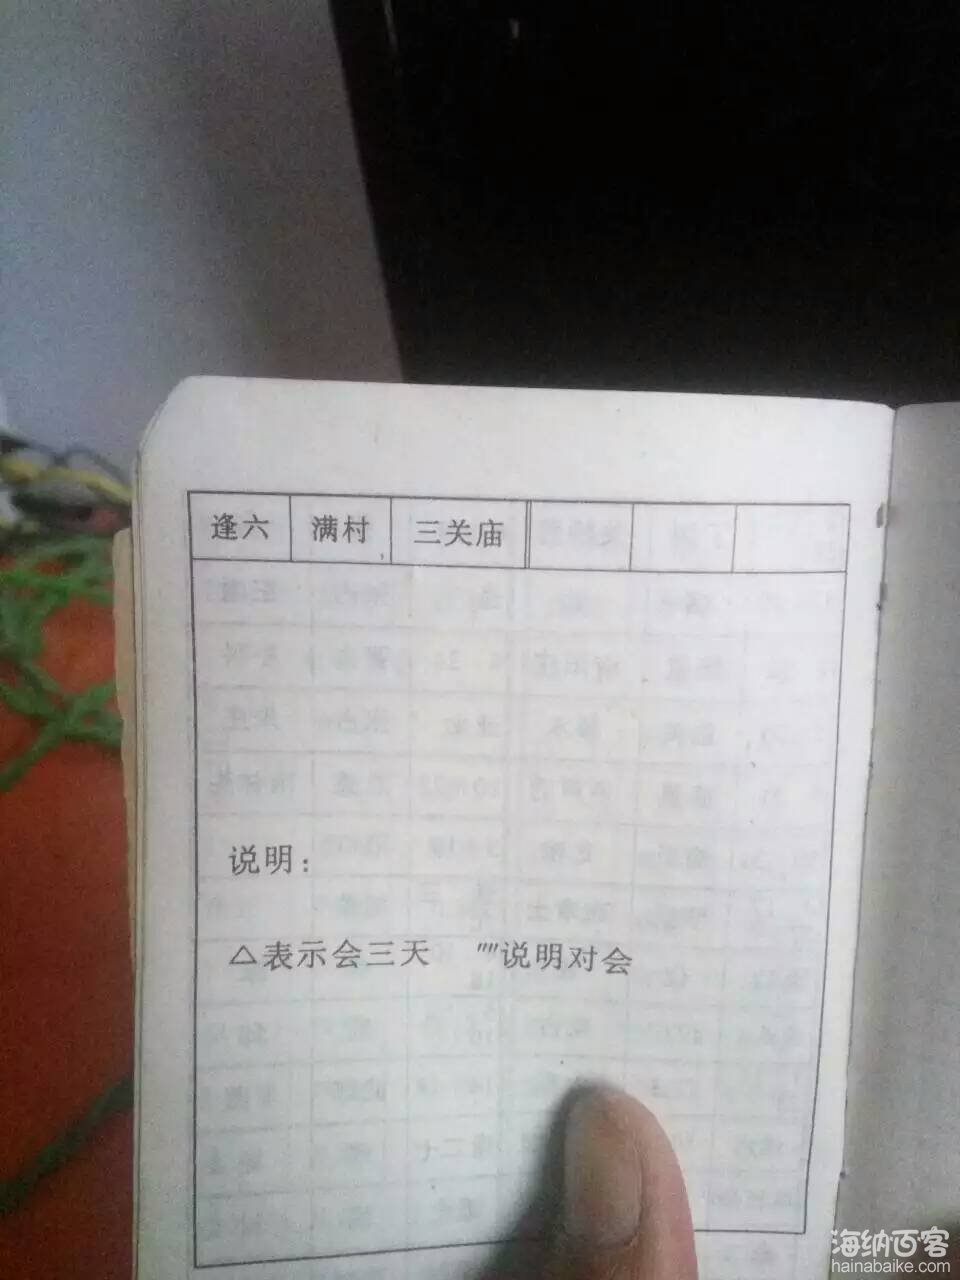 逢六 满村 三关庙
说明：
△表示会三天 ""说明对会
海纳百客
hainabaike.com